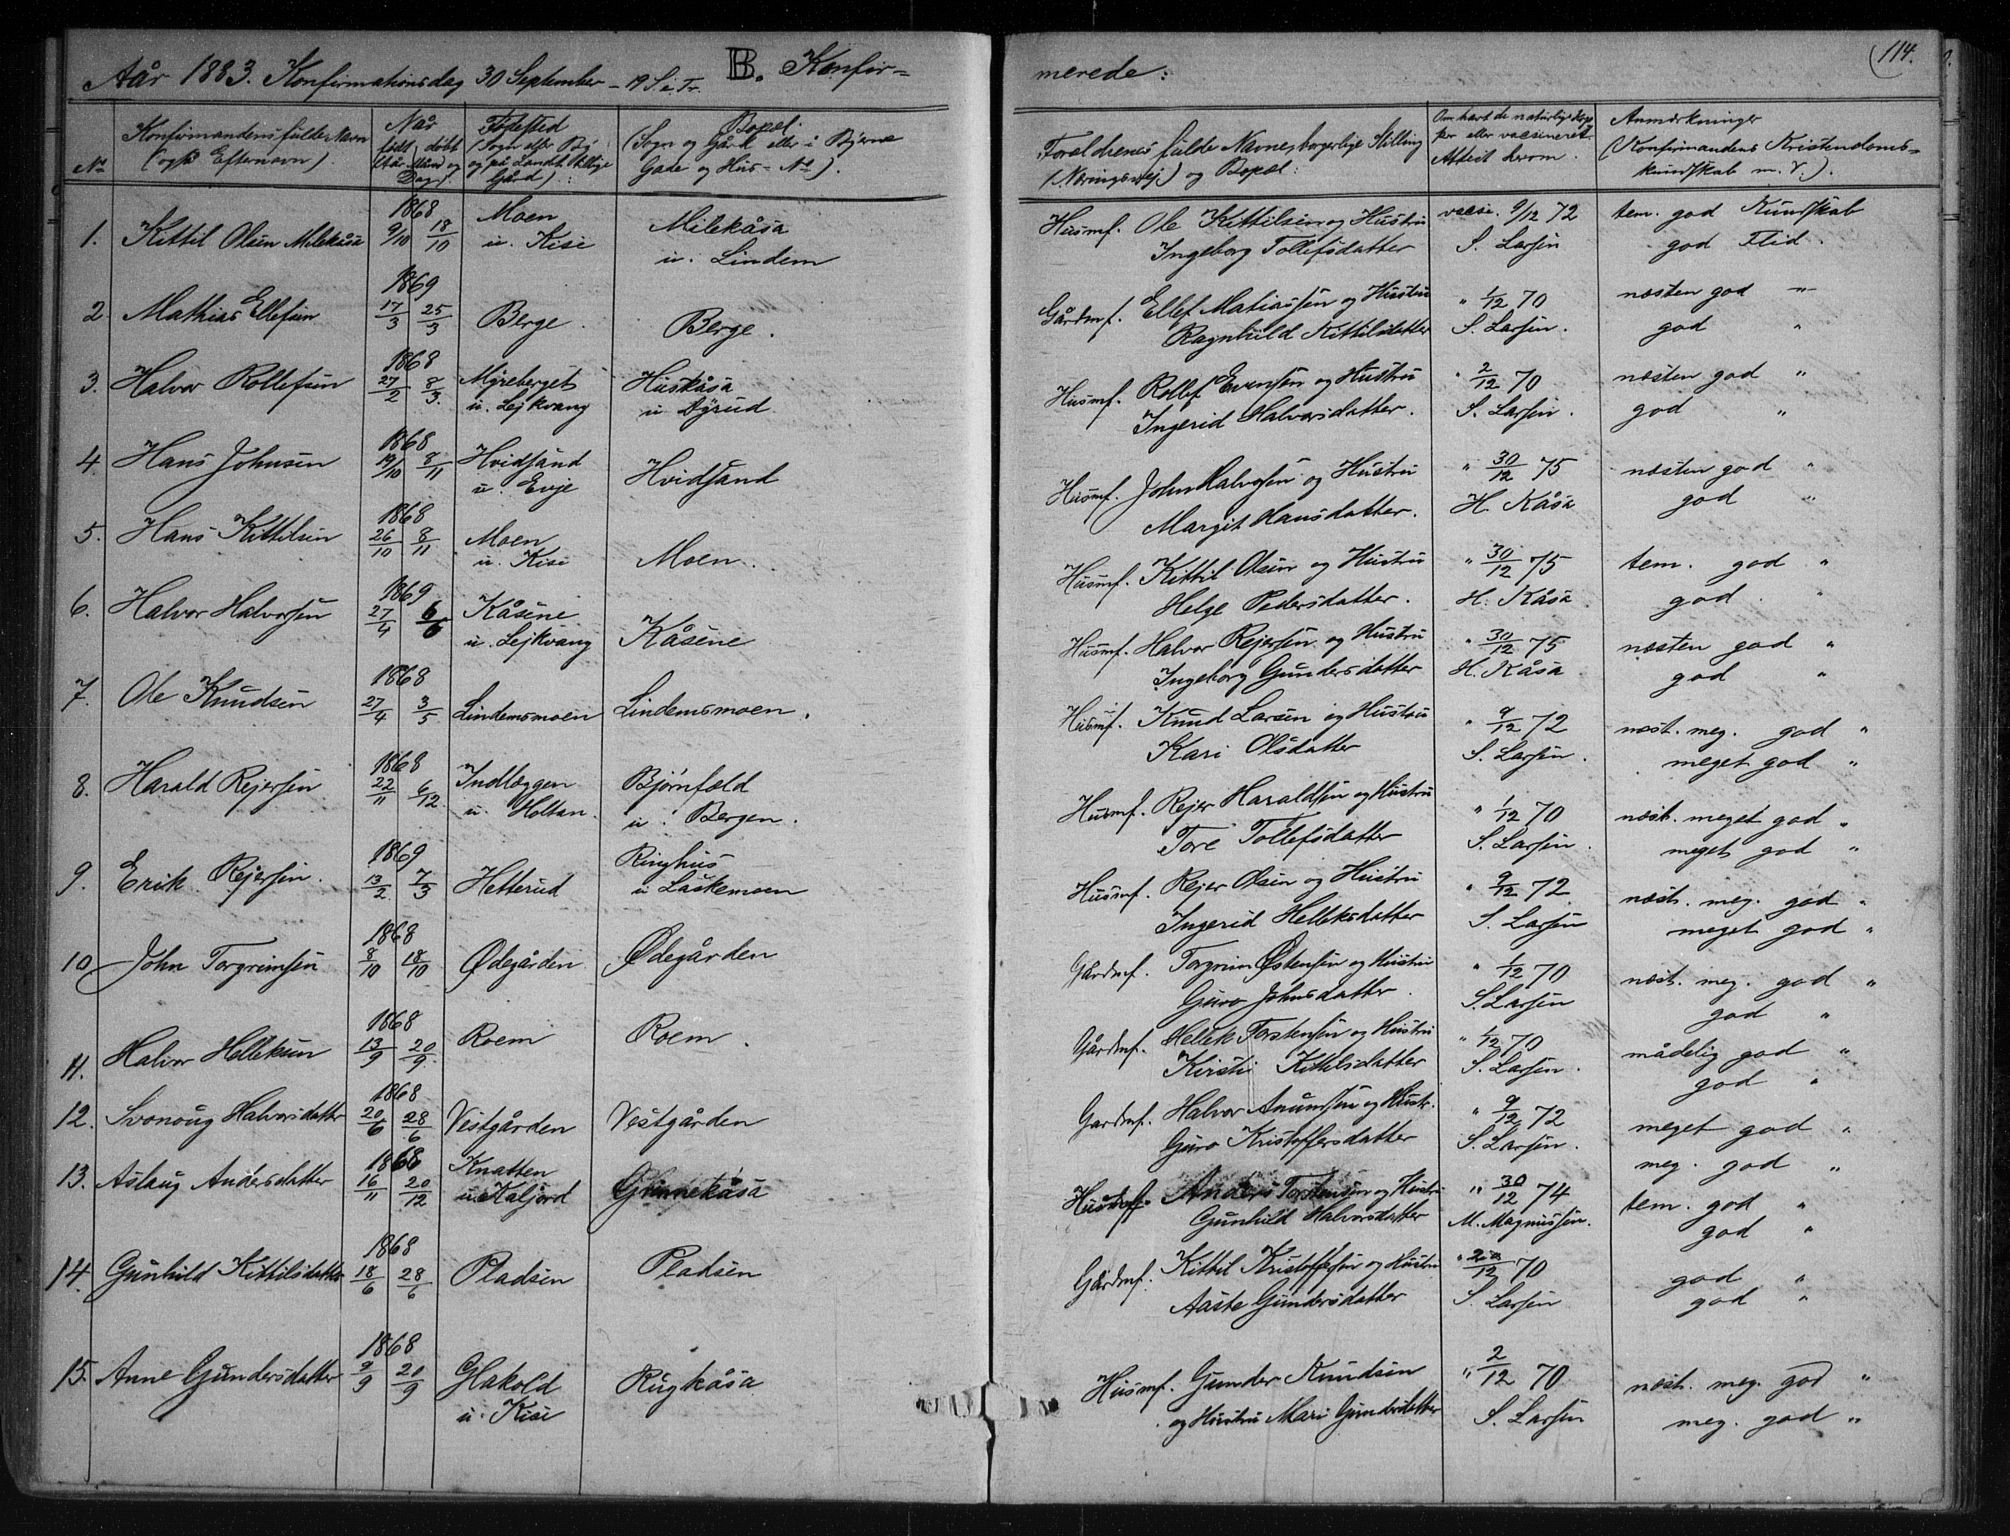 Aår 1883. Konfirmationsdag 30 September - 19 S. e. Tr. B. Konfir=
merede: 114.
No
Konfirmandens fulde Navn
(også Efternavn).
Når
født døbt
(År Måned og
Dag).
Fødested
(Sogn eller By
og på Landet tillige
Gård):
Bopæl.
(Sogn og Gård eller i Byerne
Gade og Hus-No).
Forældrenes fulde Navne, borgerlige Stilling
(Næringsvej) og Bopæl:
Om havt de naturlige Kop
per eller vaccineret
Attest herom.
Anmærkninger
(Konfirmandens Kristendoms=
kundskab m. V.).
1. Kittil Olsen Milekåsa 1868 9/10 18/10 Moen
u. Kise
Milekåsa
u. Lindem
Husmf. Ole Kittilsen og Hustru
Ingeborg Tollefsdatter
vacsi. 9/12 72
S. Larsen
tem. god Kundskab
god Flid.
2 Mathias Ellefsen 1869 17/3 25/3 Berge. Berge.
Gårdmf. Ellef Matiassen og Hustru
Ragnhild Kittilsdatter
" 1/12 70
S. Larsen.
næsten god "
god "
3. Halvor Rollefsen 1868 27/2 8/3. Myreberget
u. Lejkvang
Huskåsa
u Dyrud
Husmf. Rollef Evensen og Hustru
Ingerid Halvorsdatter.
" 2/12 70
S. Larsen.
næsten god "
god "
4. Hans Johnsen 1868 19/10 8/11 Hvidsand
u. Evje
Hvidsand
Husmf. John Halvorsen og Hustru
Margit Hansdatter.
" 30/12 75
H. Kåsa
næsten god "
god "
5. Hans Kittilsen 1868 26/10 8/11 Moen
u. Kise
Moen.
Husmf. Kittil Olsen og Hustru
Helge Pedersdatter.
" 30/12 75
H. Kåsa
tem. god "
god. "
6. Halvor Halvorsen 1869 27/4 6/6 Kåsene
u. Lejkvang
Kåsene
Husmf. Halvor Rejersen og Hustru
Ingeborg Gundersdatter
" 30/12 75
H. Kåsa
næsten god "
god "
7. Ole Knudsen 1868 27/4 3/5 Lindemsmoen Lindemsmoen.
Husmf. Knud Larsen og Hustru
Kari Olsdatter
" 9/12 72
S. Larsen.
næst. meg. god "
meget god "
8. Harald Rejersen 1868 22/11 6/12 Indlæggen
u. Holtan.
Bjørnfæld
u. Bergen.
Husmf. Rejer Haraldsen og Hustru
Tore Tollefsdatter
" 1/12 70
S. Larsen.
næst. meget god "
meget god "
9. Erik Rejersen. 1869 13/2 7/3 Hetterud Ringhus
u Laskemoen
Husmf. Rejer Olsen og Hustru
Ingerid Helleksdatter
" 9/12 72
S. Larsen
næst. meg. god "
meget god "
10 John Torgrimsen 1868 8/10 18/10 Ødegården Ødegården
Gårdmf. Torgrim Østensen og Hustru
Guro Johnsdatter.
" 1/12 70
S. Larsen
næst. meg. god "
god "
11. Halvor Helleksen 1868 13/9 20/9. Roem Roem.
Gårdmf. Hellek Torstensen og Hustru
Kirsti Kittilsdatter
" 1/12 70
S. Larsen.
mådelig god "
god "
12. Svonoug Halvorsdatter 1868 20/6 28/6 Vestgården Vestgården
Gårdmf. Halvor Anumsen og Hustr.
Guro Kristoffersdatter
" 9/12 72
S. Larsen.
meget god "
meg. god "
13. Aslaug Andersdatter 1868 16/11 20/12 Knatten
u. Kaljord
Grinnekåsa
Husmf. Anders Torstensen og Hustru
Gunhild Halvorsdatter
" 30/12 74
M. Magnussen.
tem. god "
god "
14. Gunhild Kittilsdatter 1868 18/6 28/6 Pladsen Pladsen
Gårdmf. Kittil Kristoffersen og Hustru
Aaste Gundersdatter
" 20/12 70
S. Larsen
god "
god "
15. Anne Gundersdatter 1868 9/9 20/9 Glakold
u. Kise
Rugkåsa
Husmf. Gunder Knudsen
og Hustru Mari Gundersdatter
" 2/12 70
S. Larsen
næst. meg. god "
meg. god "